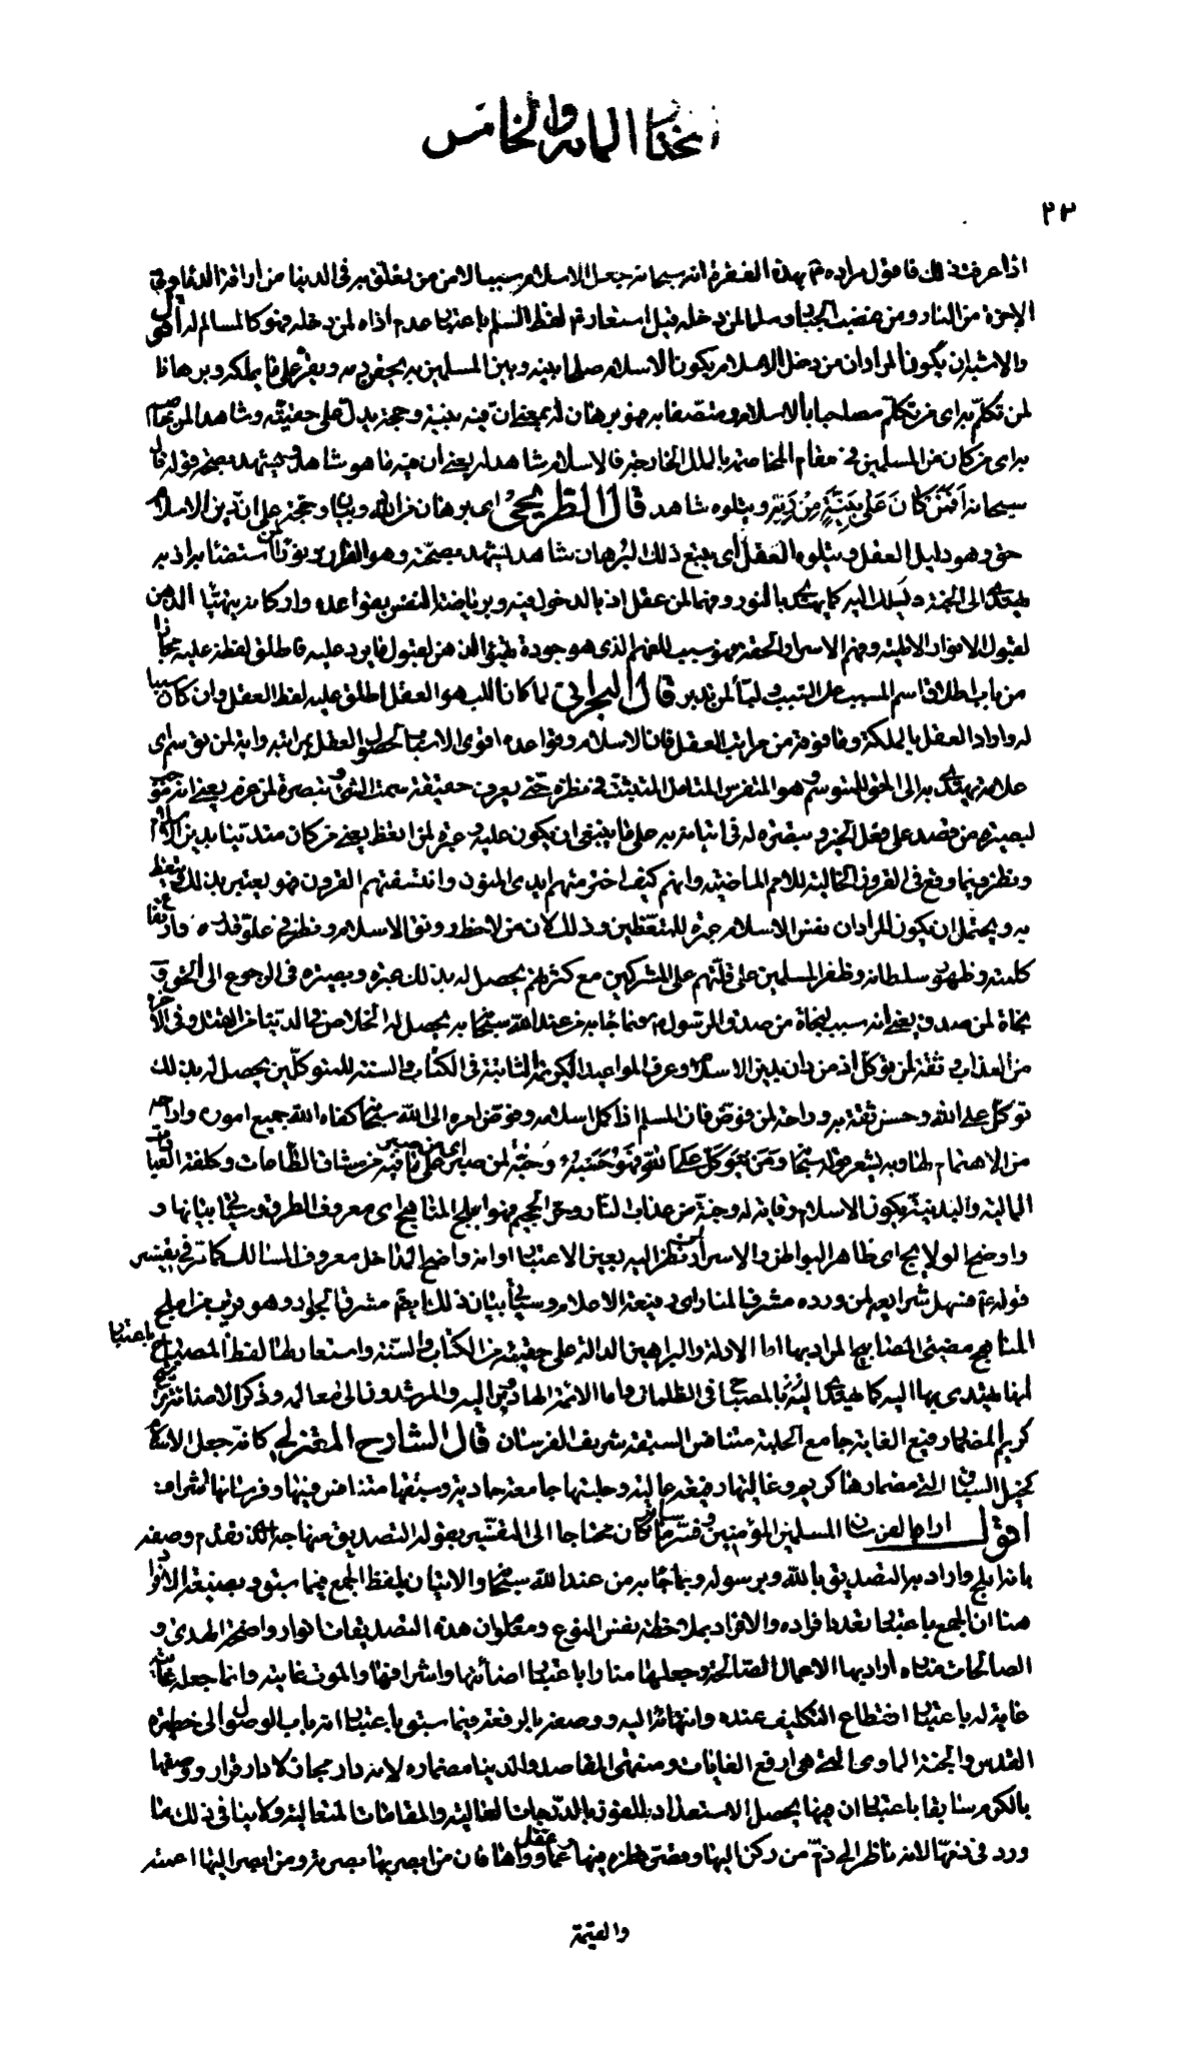 المختار المائة والخامس
٢٣
اذا عرفت ذلك فاقول مراده ع بهذه الفقرة انه سبحانه جعل الاسلام سببا لامن من تعلق به في الدنيا من اراقة الدماء وفي
الاخرة من النار ومن غضب الجبار وسلما لمن دخله قيل استعار ع لفظ السلم باعتبار عدم اذاه لمن دخله فهو كالمسالم له اقول
والاشبه ان يكون المراد ان من دخل الاسلام يكون الاسلام صلحا بينه وبين المسلمين به يحقن دمه ويقر على ما يملكه وبرهانا
لمن تكلم به اى من تكلم مصاحبا بالاسلام ومتصفا به فهو برهان له يعني ان فيه بينة وحجة يدل على حقيته وشاهدا لمن خاصم
به اى من كان من المسلمين في مقام المخاصمة بالملل الخارجة فالاسلام شاهد له يعني ان فيه ما هو شاهد يشهد بصحة قوله قال
سبحانه افمن كان على بينة من ربه ويتلوه شاهد قال الطريحي اى برهان من الله وبيان وحجة على ان دين الاسلام
حق وهو دليل العقل ويتلوه العقل اى يتبع ذلك البرهان شاهد يشهد بصحته وهو القران ونورا لمن استضاء به اذ به
يهتدى الى الجنة ويسلك اليه كما يهتدى بالنور وفهما لمن عقل اذ بالدخول فيه وبرياضة النفس بقواعده واركانه يتهيأ الذهن
لقبول الانوار الالهية وفهم الاسرار الحقة فهو سبب للفهم الذى هو جودة تهيؤ الذهن لقبول ما يرد عليه فاطلق لفظه عليه مجازا
من باب اطلاق اسم المسبب على السبب ولبا لمن تدبر قال البحراني لما كان اللب هو العقل اطلق عليه لفظ العقل وان كان سببا
له واراد العقل بالملكة وما فوقه من مراتب العقل فان الاسلام وقواعده اقوى الاسباب لحصول العقل بمراتبه واية لمن توسم اى
علامة يهتدى به الى الحق للمتوسم وهو المتفرس المتامل المتثبت في نظره حتى يعرف حقيقة سمت الشئ وتبصرة لمن عزم يعني انه موجب
لبصيرة من قصد على فعل الخير وتبصرة له في اتيانه به على ما ينبغي ان يكون عليه وعبرة لمن اتعظ يعني من كان متدينا بدين الاسلام
ونظر فيما وقع في القرون الخالية للامم الماضية وانهم كيف اخترمتهم ايدى المنون وانتسفتهم القرون فهو يعتبر بذلك ويتعظ
به ويحتمل ان يكون المراد ان نفس الاسلام عبرة للمتعظين وذلك لان من لاحظ رونق الاسلام ونظر في علو قدره وارتفاع
كلمته وظهور سلطانه وظفر المسلمين على قلتهم على المشركين مع كثرتهم يحصل له بذلك عبرة وبصيرة في الرجوع الى الحق و
نجاة لمن صدق يعني انه سبب لنجاة من صدق الرسول ص وما جاء به من عند الله سبحانه به يحصل له الخلاص في الدنيا من القتل وفي الاخرة
من العذاب وثقة لمن توكل اذ من دان بدين الاسلام وعرف المواعيد الكريمة الثابتة في الكتاب والسنة للمتوكلين يحصل له بذلك
توكل على الله وحسن ثقة به وراحة لمن فوض فان المسلم اذا كمل اسلامه وفوض امره الى الله سبحانه كفاه الله جميع اموره واراحه
من الاهتمام لها وبه يشعر قوله سبحانه ومن يتوكل على الله فهو حسبه وجنة لمن صبر اى من صبر على ما فيه من مشاق الطاعات وكلفة العبادات
المالية والبدنية يكون الاسلام وقاية له وجنة من عذاب النار وحر الجحيم فهو ابلج المناهج اى معروف الطرق وسيأتي بيانها و
واوضح الولايج اى ظاهر البواطن والاسرار لمن نظر اليه بعين الاعتبار اوانه واضح المداخل معروف المسالك كما مر في تفسير
قوله ع فسهل شرايعه لمن ورده مشرف المنار اى رفيعة الاعلام وسيأتي بيان ذلك ايضا مشرق الجواد وهو قريب من ابلج
المناهج مضيئ المصابيح المراد بها اما الادلة والبراهين الدالة على حقيته من الكتاب والسنة واستعارة لفظ المصابيح باعتبار
انها يهتدى بها اليه كما يهتدى الى بالمصباح في الظلمات واما الائمة الهادون اليه والمرشدون الى معالمه وذكر الاضائة ترشيح
كريم المضمار رفيع الغاية جامع الحلبة متنافس السبقة شريف الفرسان قال الشارح المعتزلي كانه جعل الاسلام
كخيل السباق التي مضمارها كريم وغايتها رفيعة عالية وحلبتها جامعة حاوية وسبقتها متنافس فيها وفرسانها اشراف
اقول اراد بالفرسان المسلمين المؤمنين وفسر ما كان محتاجا الى التفسير بقوله التصديق منهاجه الذى تقدم وصفه
بانه ابلج واراد به التصديق بالله وبرسوله وبما جاء به من عند الله سبحانه والاتيان بلفظ الجمع فيما سبق وبصيغة الافراد
هنا ان الجمع باعتبار تعدد افراده والافراد بملاحظة نفس النوع ومعلوم ان هذه التصديقات انوار واضحة الهدى و
الصالحات مناره اراد بها الاعمال الصالحة وجعلها منارا باعتبار اضائتها واشراقها والموت غايته وانما جعله ع
غاية له باعتبار انقطاع التكليف عنده وانتهائه اليه ووصفه بالرفعة فيما سبق باعتبار انه باب الوصول الى خطيرة
القدس والجنة الماوى التي هي ارفع الغايات ومنتهى المقاصد والدنيا مضماره لانه دار مجاز لا دار قرار ووصفها
بالكرم سابقا باعتبار ان فيها يحصل الاستعداد للفوز بالدرجات العالية والمقامات المتعالية ولا ينافي ذلك ما
ورد في ذمها لانه ناظر الى ذم من ركن اليها وقصر نظره فيها عما وراها فان من ابصر بها بصرته ومن ابصر اليها اعمته
والقيمة